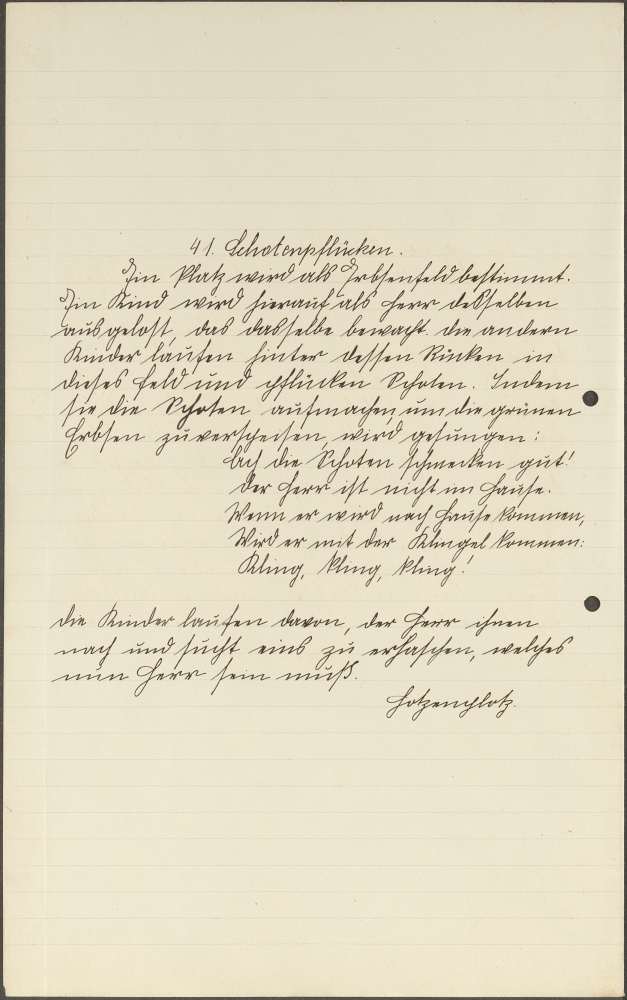 41. Schotenpflücken.
Ein Platz wird als Erbsenfeld bestimmt.
Ein Kind wird hierauf als Herr desselben
ausgelost, das dasselbe bewacht. die andern
Kinder laufen hinter dessen Rücken in
dieses Feld und pflücken Schoten. Indem
sie die Schoten aufmachen, um die grünen
Erbsen zu verspeisen, wird gesungen:
Ach die Schoten schmecken gut!
Der Herr ist nicht im Hause.
Wenn er wird nach Hause kommen,
Wird er mit der Klingel kommen:
Kling, kling, kling!
die Kinder laufen davon, der Herr ihnen
nach und sucht eins zu erhaschen, welches
nun Herr sein muß.
Hotzenplotz.